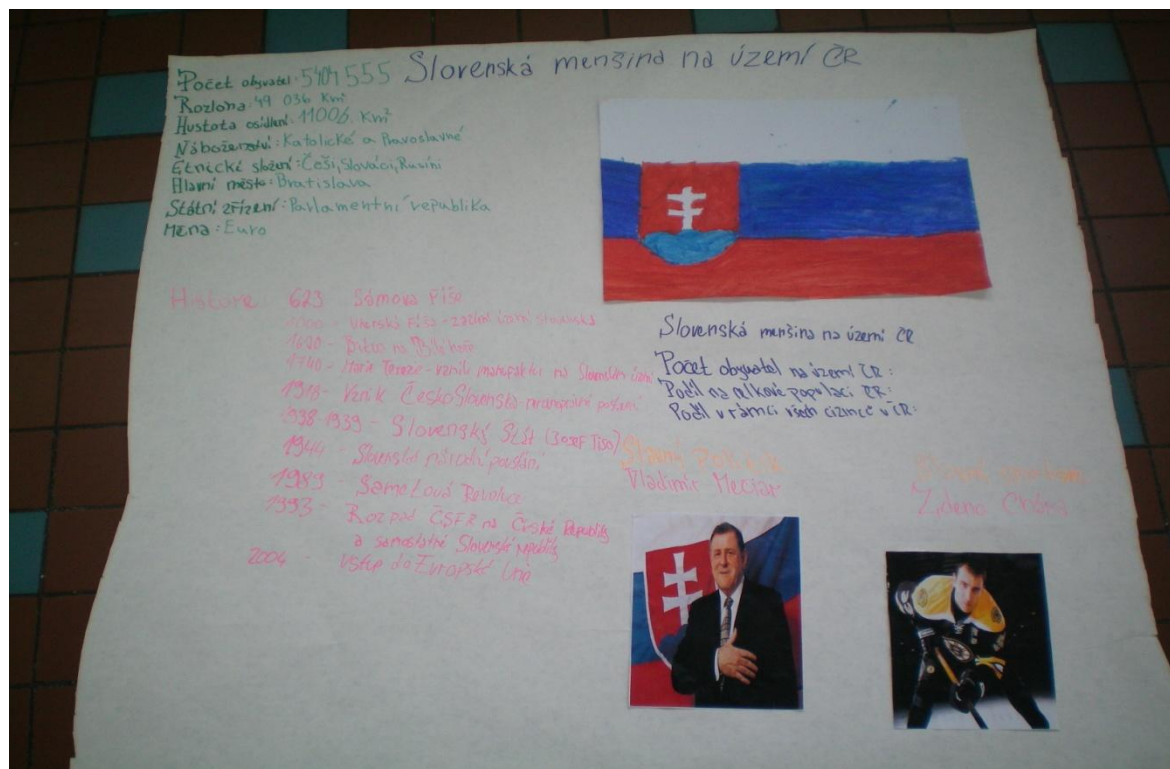 Slovenská menšina na území ČR
Počet obyvatel: 5404555
Rozloha: 49 036 Km²
Hustota osídlení: 11006 Km²
Náboženství: Katolické a Pravoslavné
Etnické složení: Češi, Slováci, Rusíni
Hlavní město: Bratislava
Státní zřízení: Parlamentní republika
Měna: Euro
Historie 623 Sámova říše
Uherská říše - území slovenska
1620 - Bitva na Bílé hoře
1740 - Marie Terezie - vznik na Slovenském území
1918 - Vznik Československa
1938 1939 - Slovenský Štát (Josef Tiso)
1944 - Slovenské národní povstání
1989 - Sametová Revoluce
1993 - Rozpad ČSFR na České Republiky
a samostatné Slovenské republiky
2004 - Vstup do Evropské Unie
Slovenská menšina na území ČR
Počet obyvatel na území ČR:
Podíl na celkové populaci ČR:
Podíl v rámci všech cizinců v ČR:
Slavný Politik
Vladimír Mečiar
Slavný sportovec
Zdeno Chára